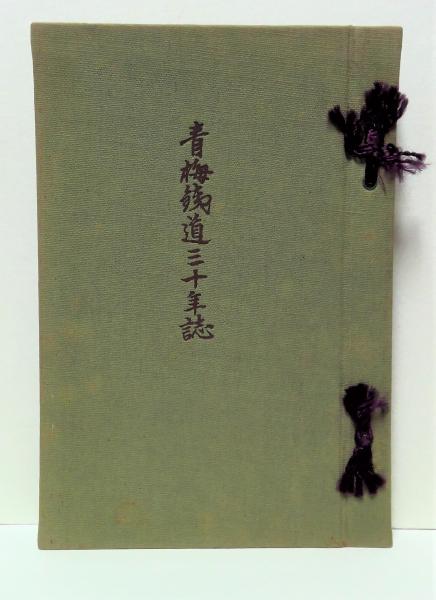 青梅鉄道三十年誌